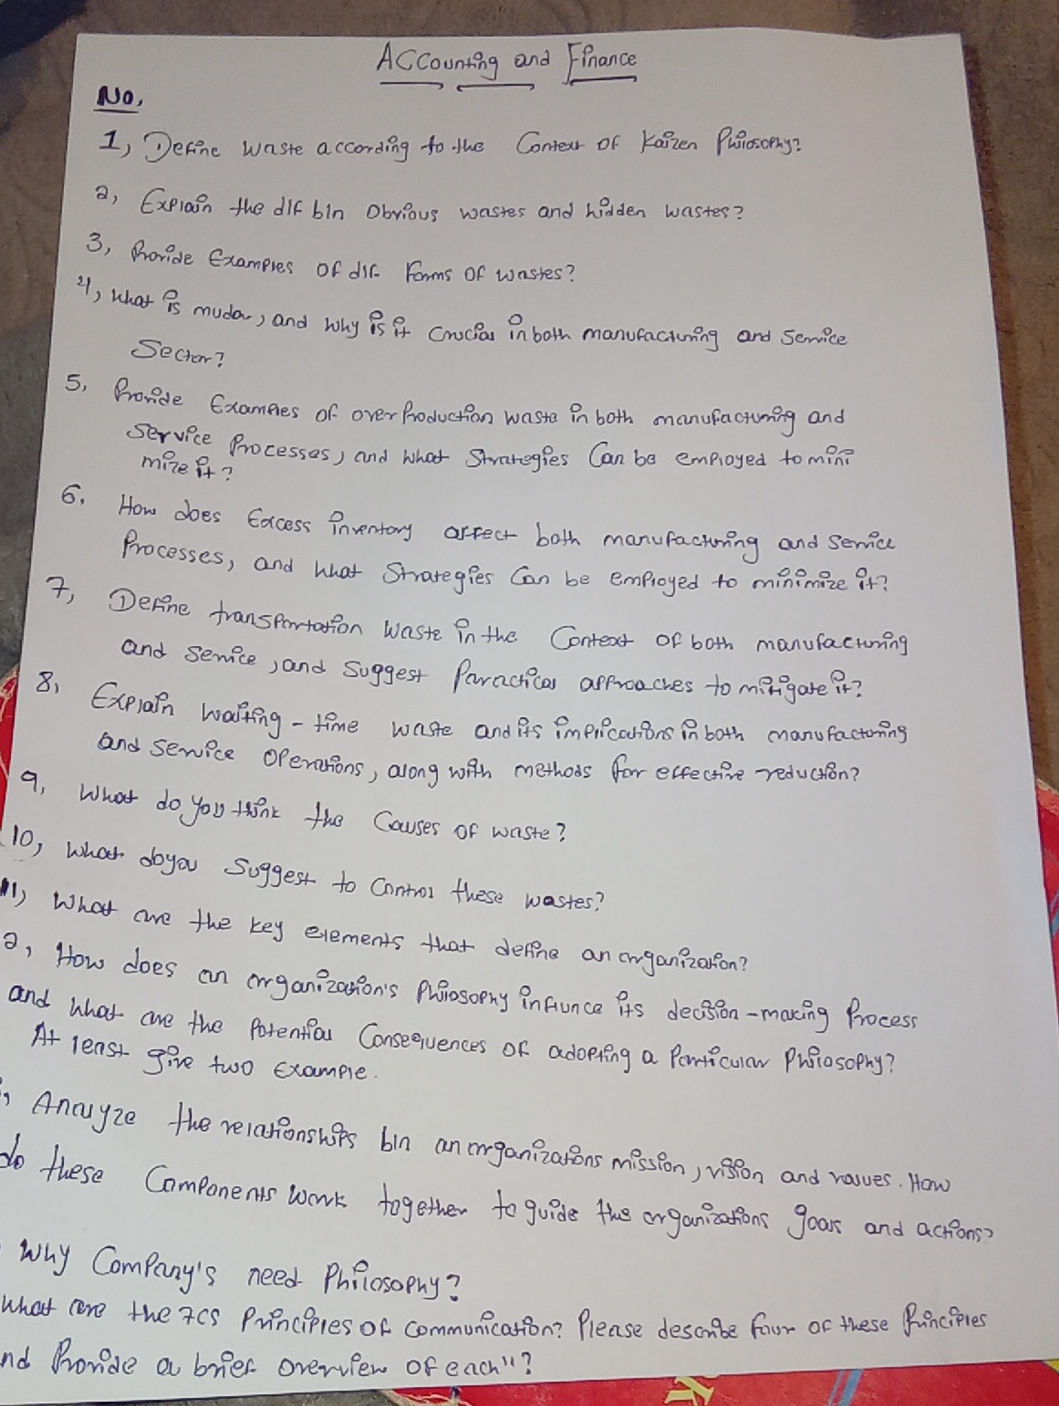 Accounting and Finance
No.
1, Define waste according to the Context of Kaizen Philosophy?
2, Explain the dif b/n Obvious wastes and hidden wastes?
3, Provide Examples of dif- Forms of wastes?
4, What is muda, and why is it crucial in both manufacturing and Service
Sector?
5, Provide Examples of overProduction waste in both manufacturing and
Service Processes, and what Strategies Can be employed to mini
mize it?
6, How does Excess inventory affect both manufacturing and service
Processes, and what Strategies Can be employed to minimize it?
7, Define transportation waste in the Context of both manufacturing
and service, and suggest Paractical approaches to mitigate it?
8, Explain waiting-time waste and its implications in both manufactoring
and service Operations, along with methods for effective reduction?
9, What do you think the Causes of waste?
10, What do you Suggest to Control these wastes?
11, What are the key elements that define an organization?
2, How does an organization's Philosophy infiunce its decision-making Process
and what are the Potential Consequences of adopting a Particular Philosophy?
At least give two example.
, Analyze the relationships b/n an organizations mission, vision and values. How
do these Components work together to guide the organizations goals and actions?
Why Company's need Philosophy?
What are the 7CS Principles of communication? Please describe four of these Principles
nd Provide a brief overview of each"?
K